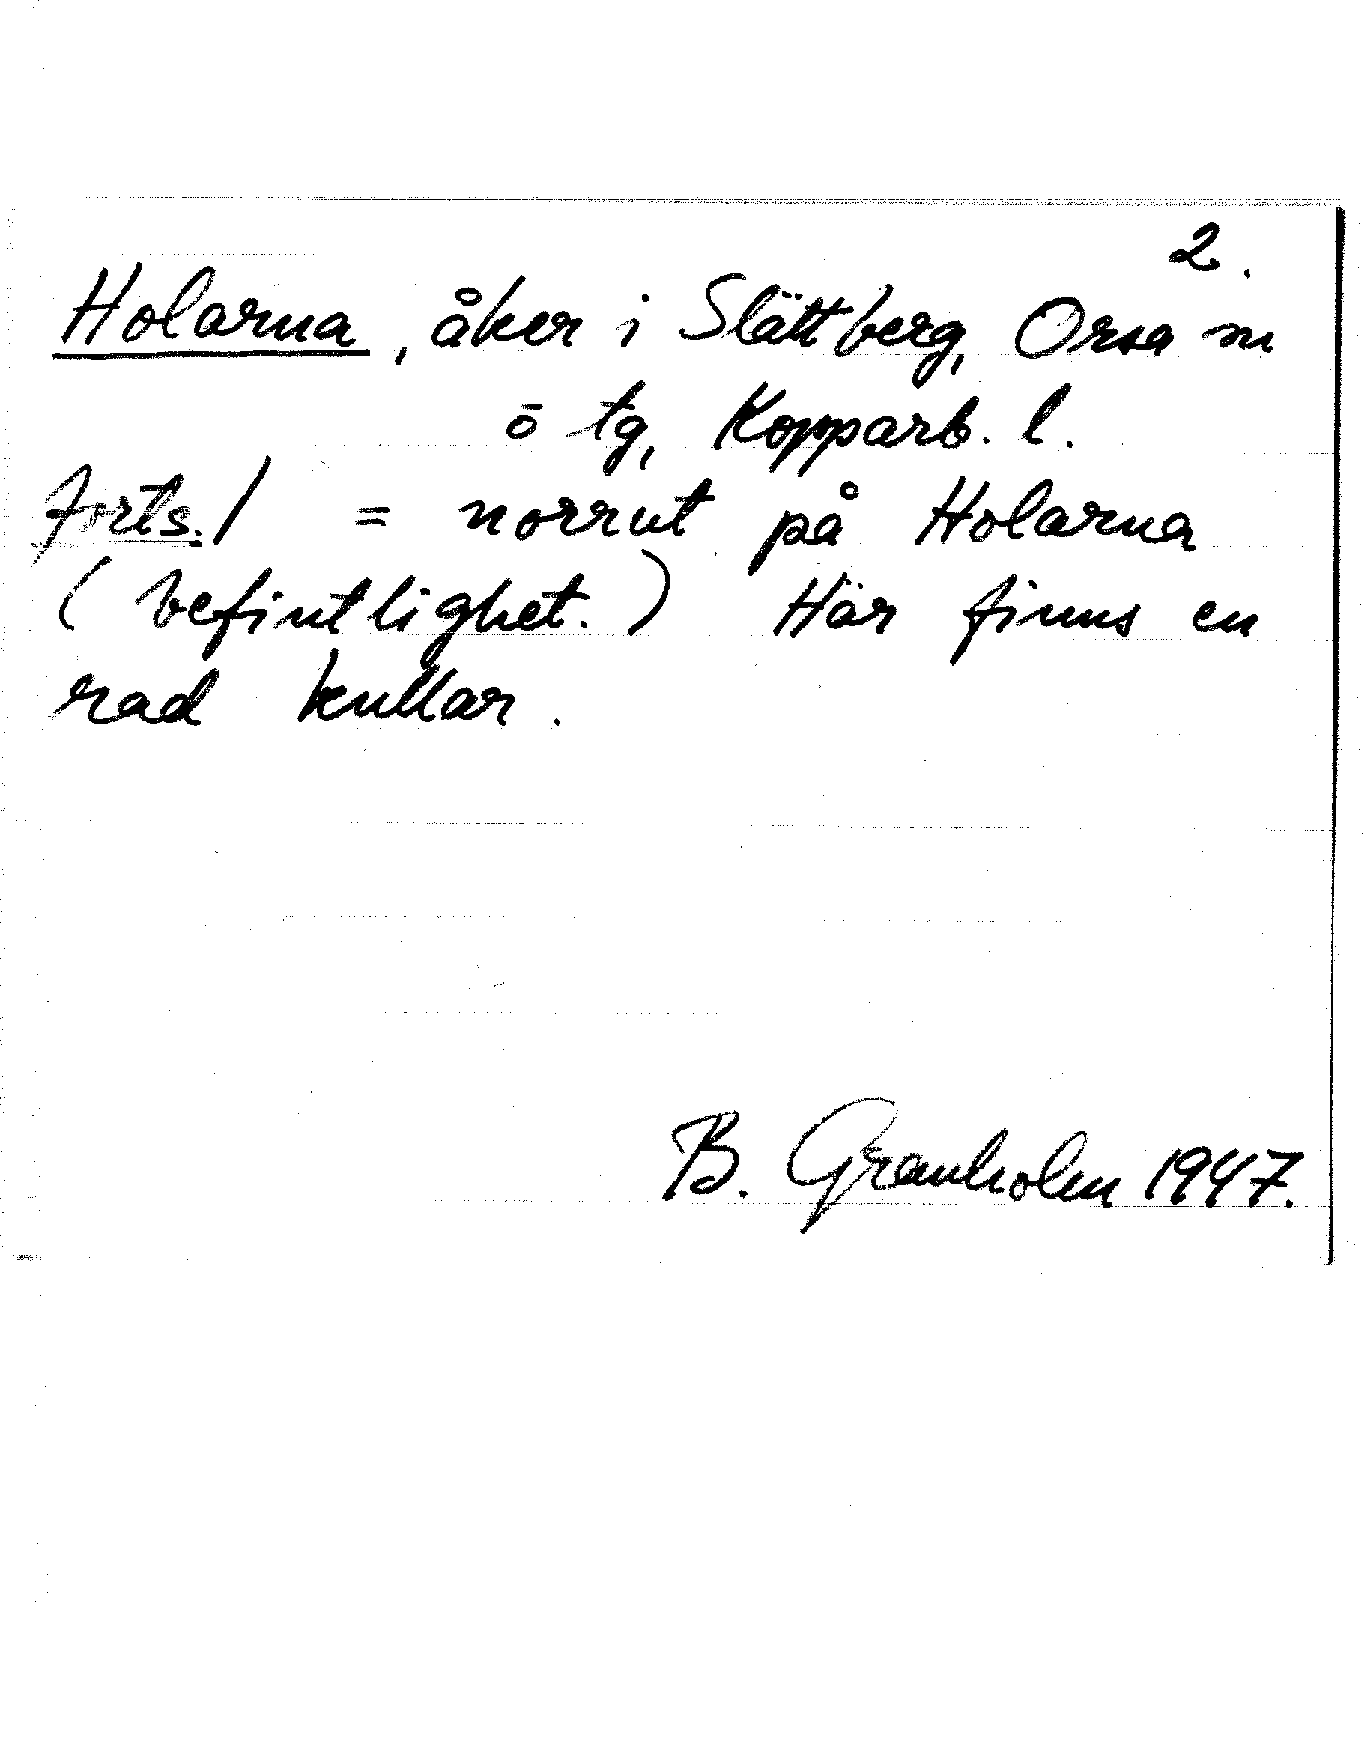 2.
Holarna, åker i Slättberg, Orsa sn
ö tg, Kopparb. l.
Forts./ = norrut på Holarna
(befintlighet.) Här finns en
rad kullar.
B. Granholm 1947.